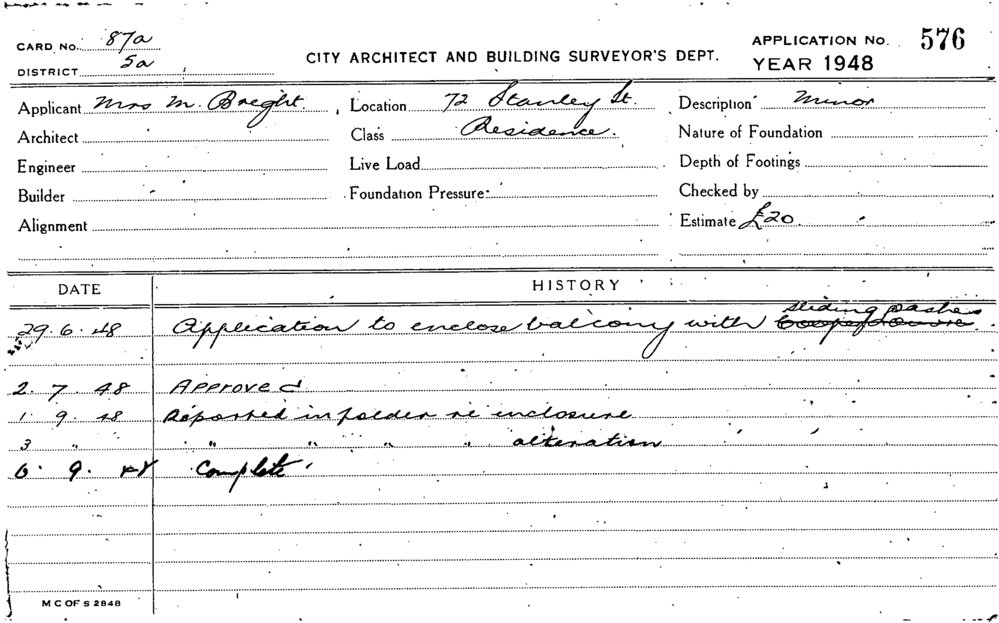 CARD No. 87a
DISTRICT 5a
CITY ARCHITECT AND BUILDING SURVEYOR'S DEPT.
APPLICATION No. 576
YEAR 1948
Applicant Mrs M. Breght. Location 72 Stanley St. Description Minor
Architect Class Residence. Nature of Foundation
Engineer Live Load Depth of Footings
Builder Foundation Pressure: Checked by
Alignment Estimate £20
DATE HISTORY
sliding sashes
29.6.48 Application to enclose balcony with
2. 7. 48 Approved
1. 9. 48 Reported in folder re enclosure
3 " " " " " alteration
6. 9. 48 Complete
M C OF S 2848